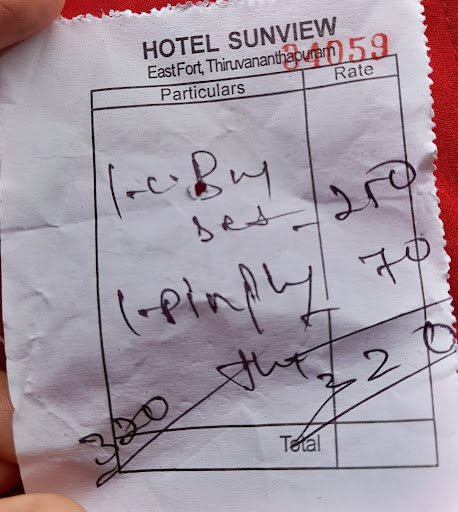 HOTEL SUNVIEW
East Fort, Thiruvananthapuram
34059
Particulars Rate
1-C. B
set - 250
1- 70
320
320
Total